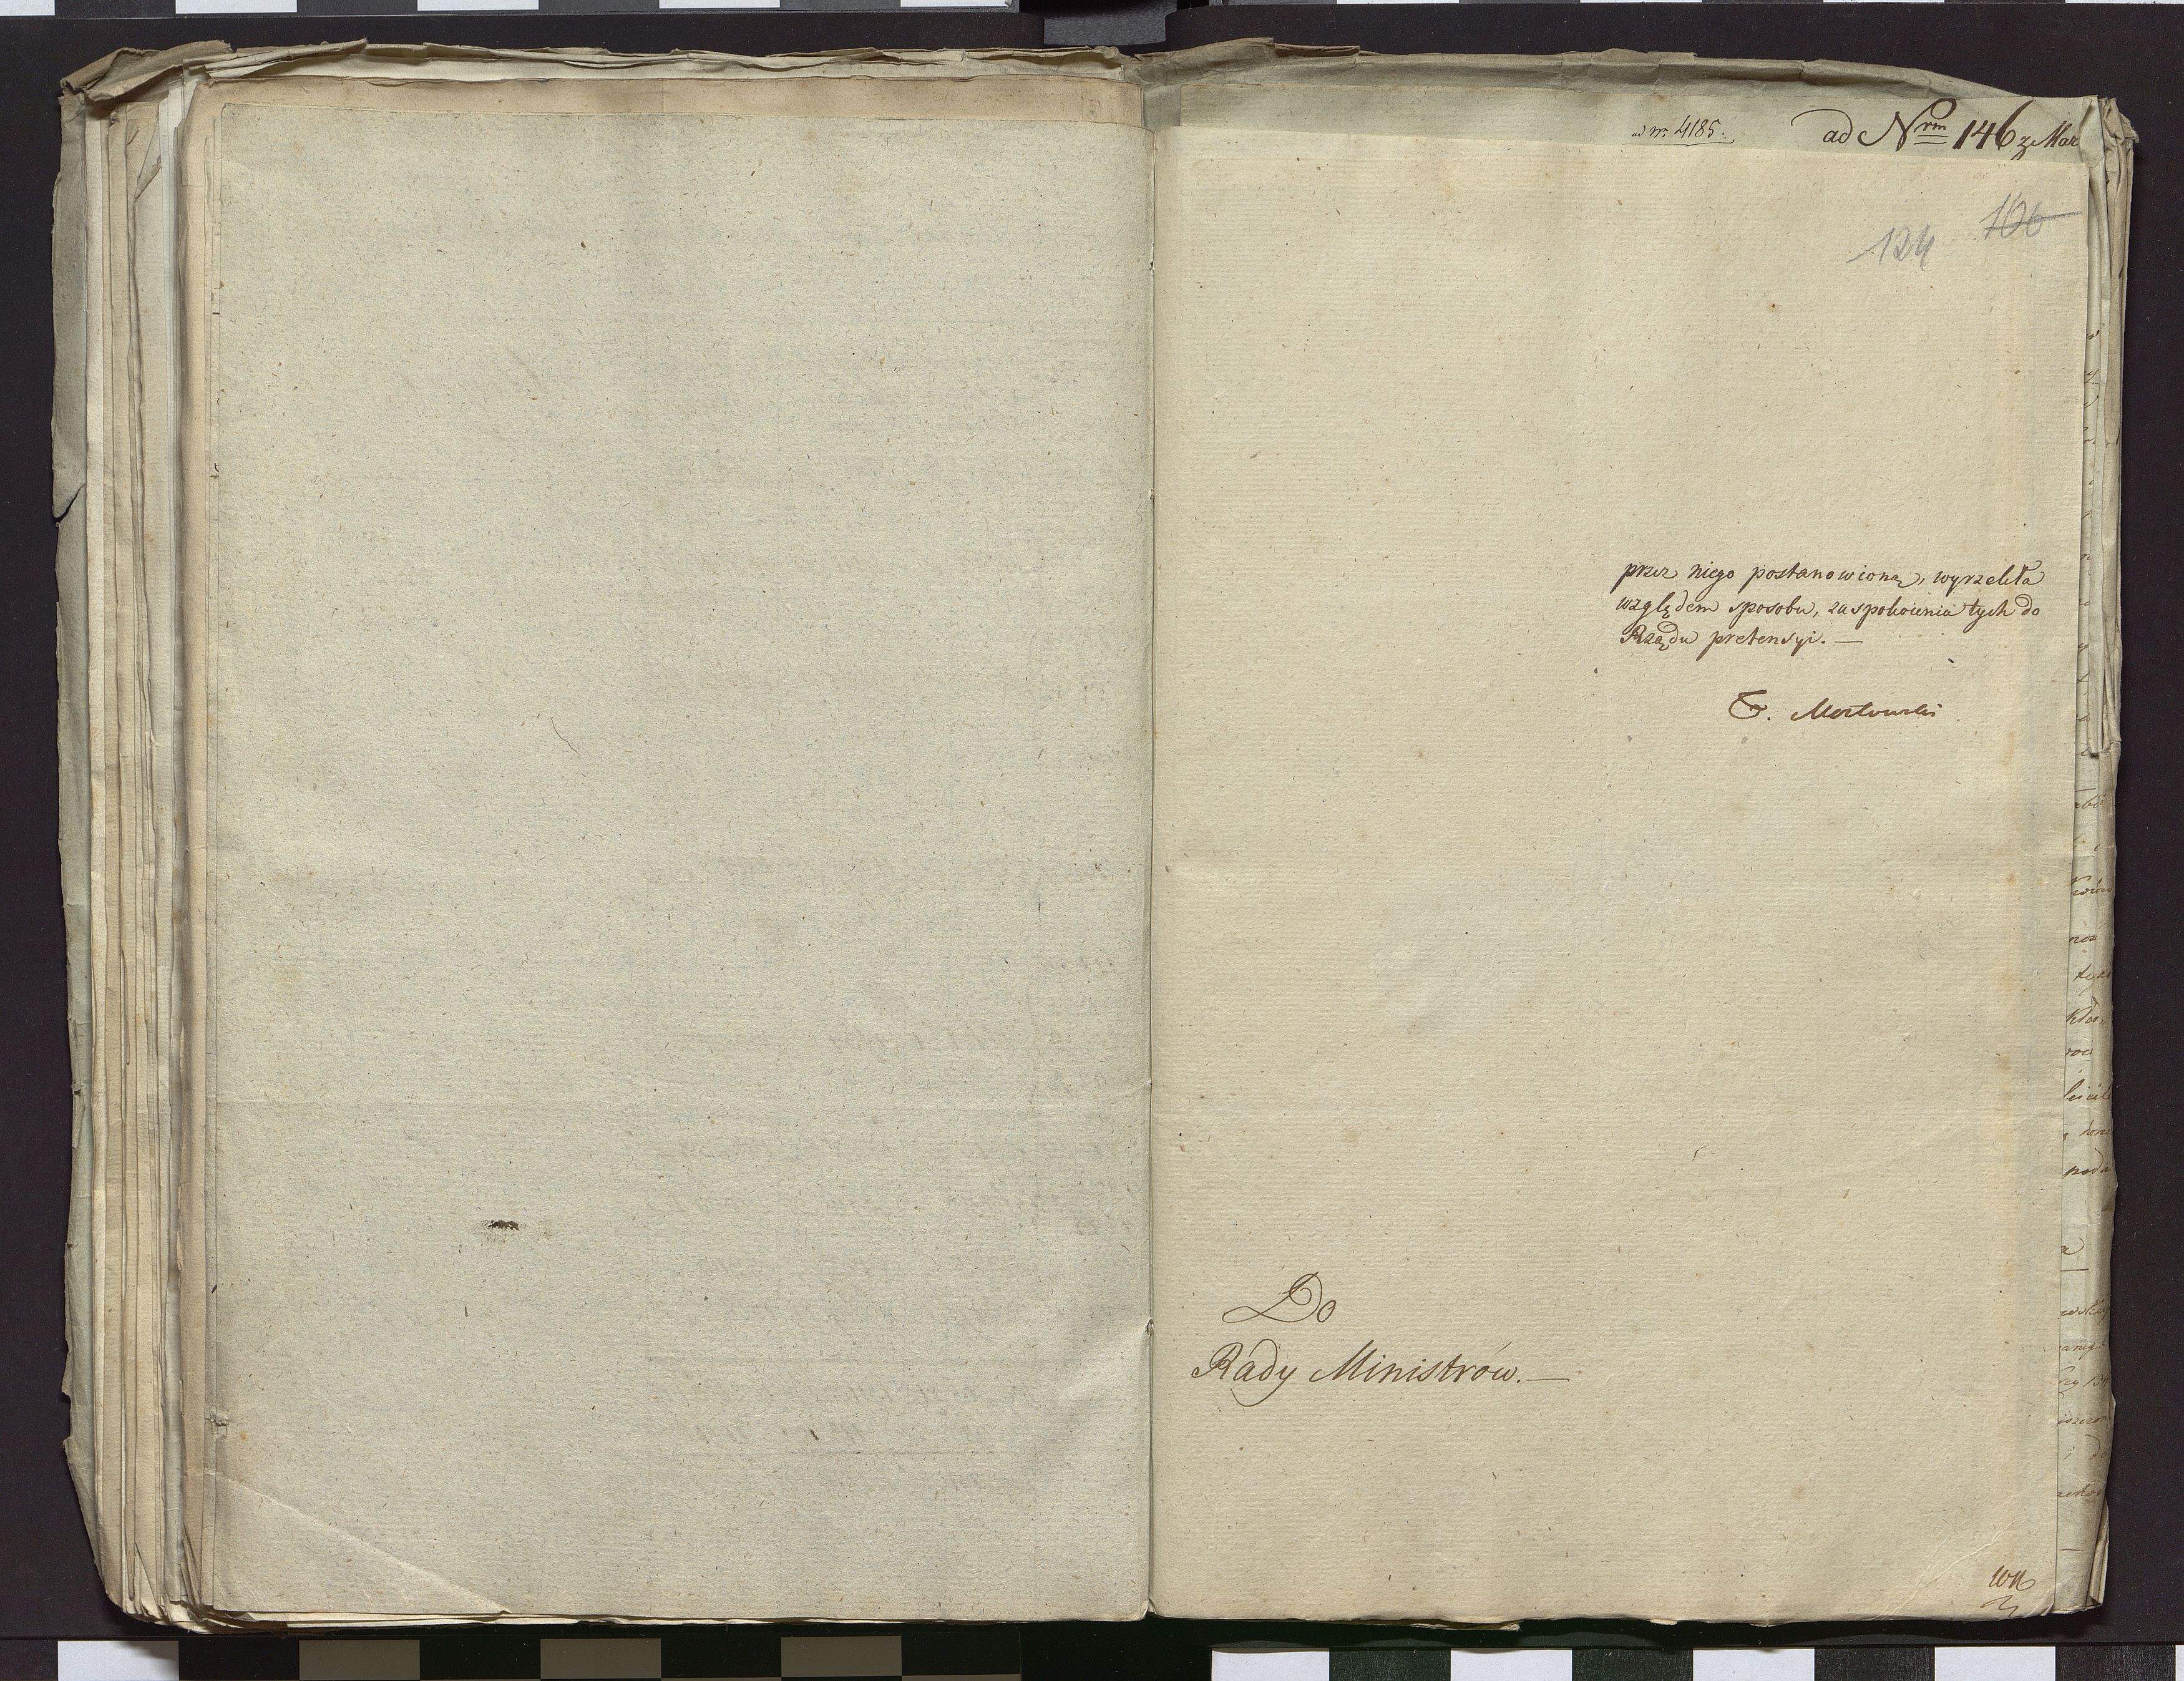 ad Nr 4185.
ad Nrm 146 z Mar
106
124
przez niego postanowioną, wyrzekła
względem sposobu, zaspokoienia tych do
Rządu pretensyi. —
T. Mostowski
Do
Rady Ministrów. —